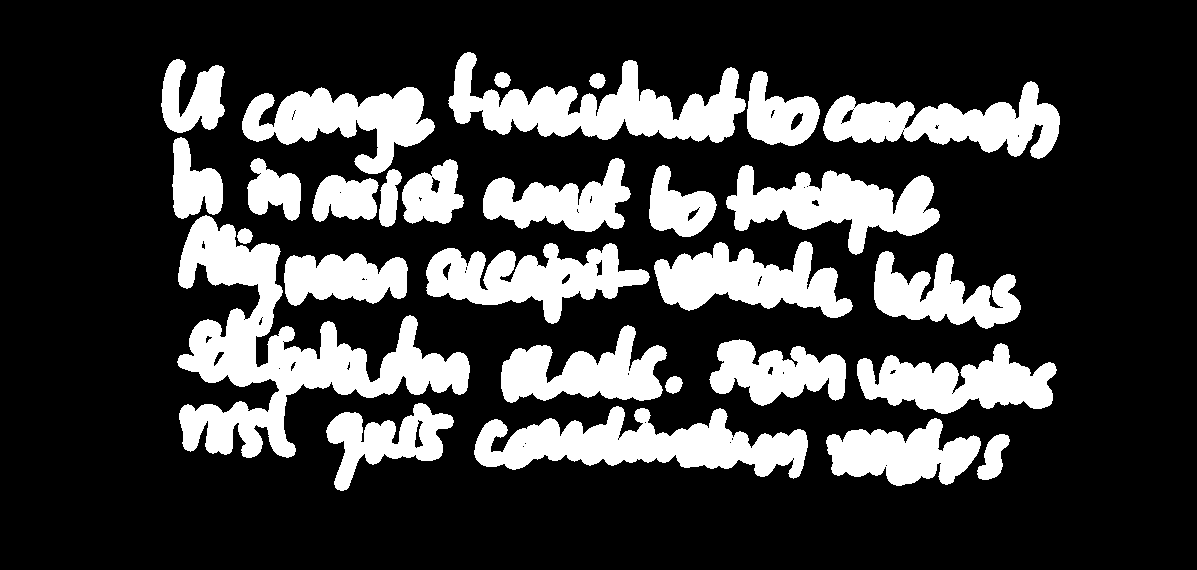 Ut congue tincidunt leo
In in nisi sit amet leo tristique
Aliquam suscipit vehicula lectus
sollicitudin Proin venenatis
nisl quis condimentum